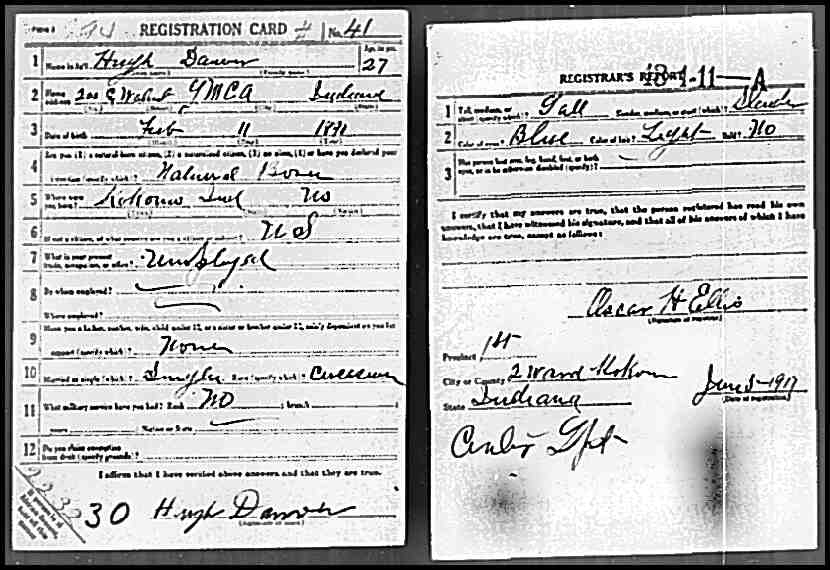 REGISTRATION CARD No. 41
1 Name in full Hugh Age, in yrs. 27
2 Home address YMCA Indiana
3 Date of birth Feb 11
4 Are you (1) a natural-born citizen, (2) a naturalized citizen, (3) an alien, (4) or have you declared your
intention (specify which)? Natural Born
5 Where were you born? Kokomo Ind US
6 If not a citizen, of what country are you a citizen US
7 What is your present trade, occupation, or office?
8 By whom employed?
Where employed?
9 Have you a father, mother, wife, child under 12, or a sister or brother under 12, solely dependent on you for
support (specify which)? None
10 Married or single (which)? Single Race (specify which)?
11 What military service have you had? Rank NO ; branch
years ; Nation or State
12 Do you claim exemption from draft (specify grounds)?
I affirm that I have verified above answers and that they are true.
30 Hugh
REGISTRAR'S REPORT 13-1-11-A
1 Tall, medium, or short (specify which)? Tall Slender, medium, or stout (which)? Slender
2 Color of eyes? Blue Color of hair? Light Bald? No
3 Has person lost arm, leg, hand, foot, or both
eyes, or is he otherwise disabled (specify)?
I certify that my answers are true, that the person registered has read his own
answers, that I have witnessed his signature, and that all of his answers of which I have
knowledge are true, except as follows:
Oscar H Ellis
(Signature of registrar)
Precinct 1st
City or County 2 Ward
State Indiana June 5-1917
(Date of registration)
Center